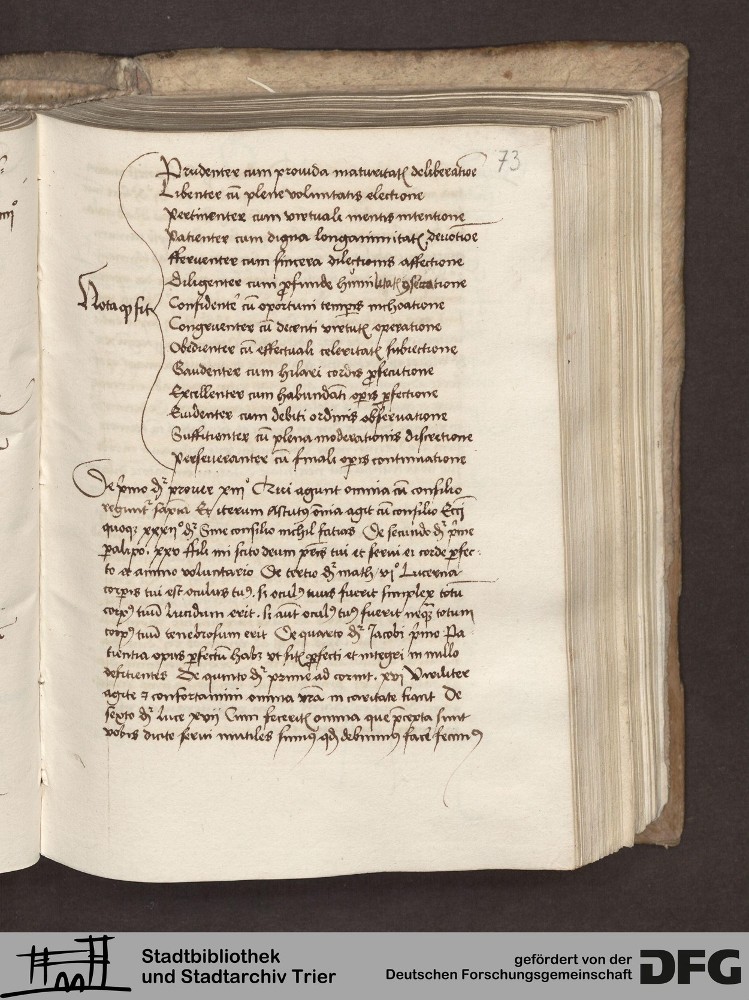 73
Prudenter cum prouida maturitatꝭ deliberatōe
Libenter cū plene voluntatis electione
Pertinenter cum virtuali mentis intentione
Patienter cum digna longanimitatꝭ deuotiōe
fferuenter cum sincera dilectionis affectione
Diligenter cum ꝓfunde hūilitatꝭ ꝯseratione
Nota ꝙ sit
Confidentē cū oportuni temꝑis inchoatione
Congruenter cū decenti virtutꝭ operatione
Obedienter cū effectuali celeritatꝭ subiectione
Gaudenter cum hilari cordis ꝓsecutione
Excellenter cum habundāti oꝑis ꝑfectione
Euidenter cum debiti ordinis obseruatione
Suffitienter cū plena moderationis discretione
Perseueranter cū finali oꝑis continuatione
De pͥmo dr̄ prouer xiiiº Qui agunt omnia cū consilio
regunt᷑ sapīa Et iterum Astutꝯ om̄ia agit cū consilio Ecci
quoqꝫ xxxiiº dr̄ Sine consilio nichil facias De secundo dr̄ pͥme
ꝑalipo. xxv ffili mi scito deum pr̄is tui et serui ei corde ꝑfec-
to et animo voluntario De tertio dr̄ math viº Lucerna
corꝑis tui est oculus tuꝯ. si oculꝯ tuus fuerit simplex totū
corpꝯ tuū lucidum erit. si aūt oculꝯ tuꝯ fuerit neq̄ꝫ totum
corpꝯ tuū tenebrosum erit De quarto dr̄ Jacobi pͥmo Pa-
tientia opus ꝑfectū habꝫ vt sitꝭ ꝑfecti et integri in nullo
defitientes De quinto dr̄ prime ad corint. xvi Viriliter
agite ⁊ confortamini omnia vr̄a in caritate fiant De
sexto dr̄ luce xvii Cum feceritꝭ omnia que p̄cepta sunt
vobis dicite serui inutiles sumꝯ qd̄ debuimꝯ facē fecimꝯ
Stadtbibliothek
und Stadtarchiv Trier
gefördert von der
Deutschen Forschungsgemeinschaft
DFG